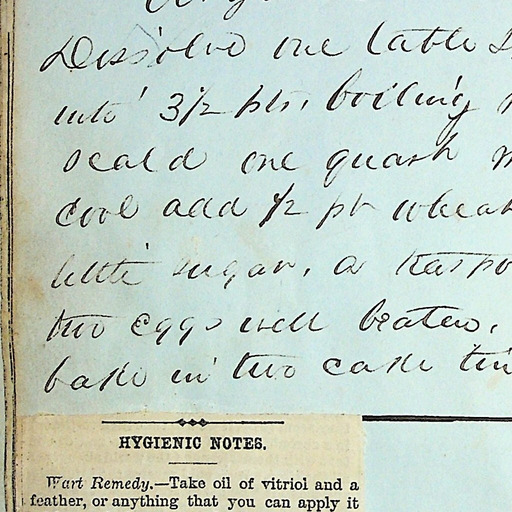 Dissolve one table
into 3½ pts. boiling
scald one quart
cool add ½ pt wheat
little sugar, a teaspo
two eggs well beaten,
bake in two cake tin
HYGIENIC NOTES.
Wart Remedy.—Take oil of vitriol and a
feather, or anything that you can apply it